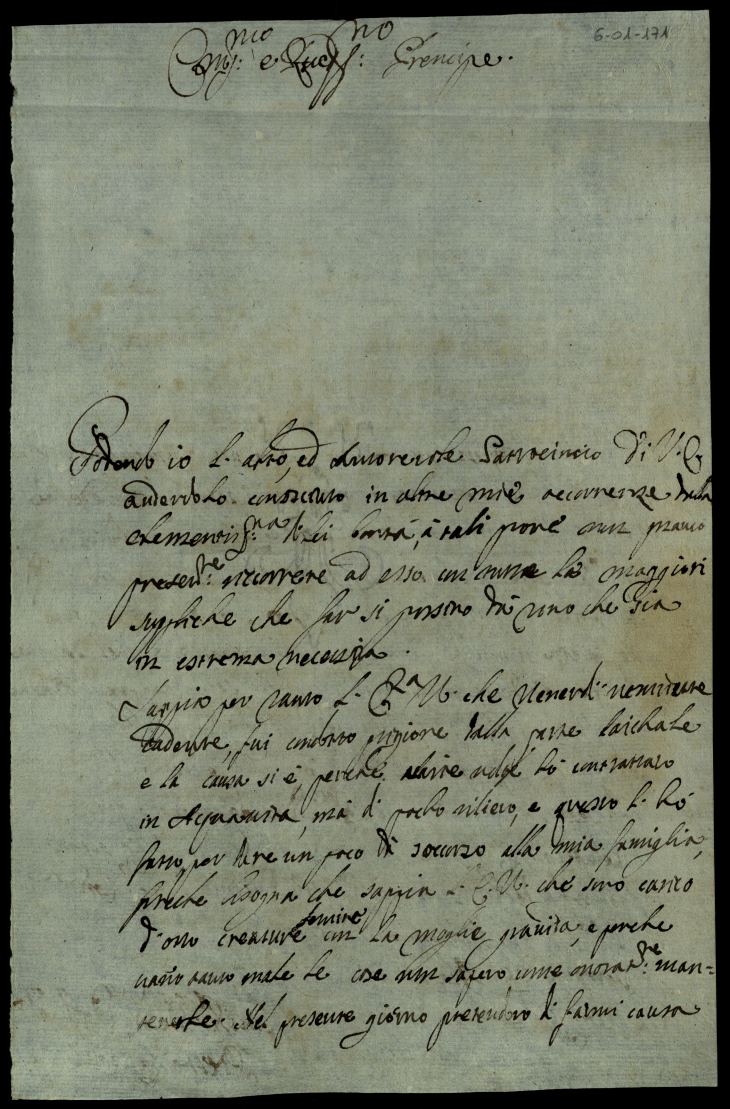 6-01-171
Em.mo e Rev.mo Prencipe.
io l'alto, ed autorevole Patrocinio di V. E.
havendolo conosciuto in altre mie occorrenze dalla
clementiss.ma di lei bontà, à tali
presen.te ricorrere ad esso con tutte le maggiori
suppliche che far si possono dà uno che stia
in estrema necessità.
Sappia per tanto l'E.za V. che Venerdì ventidue
cadente, fui condotto prigione dalla parte laichale
e la causa si é, perché altre volte hò contrattato
in Aquavita, mà di pocho rilievo, e questo l'hò
fatto per dare un poco di soccorzo alla mia famiglia,
perche bisogna che sappia l'E. V. che sono carico
d'otto creature femine con la moglie gravida, e perche
vanno tanto male le cose non sapevo come onorat.te man=
tenerle. Nel presente giorno pretendono di farmi causa